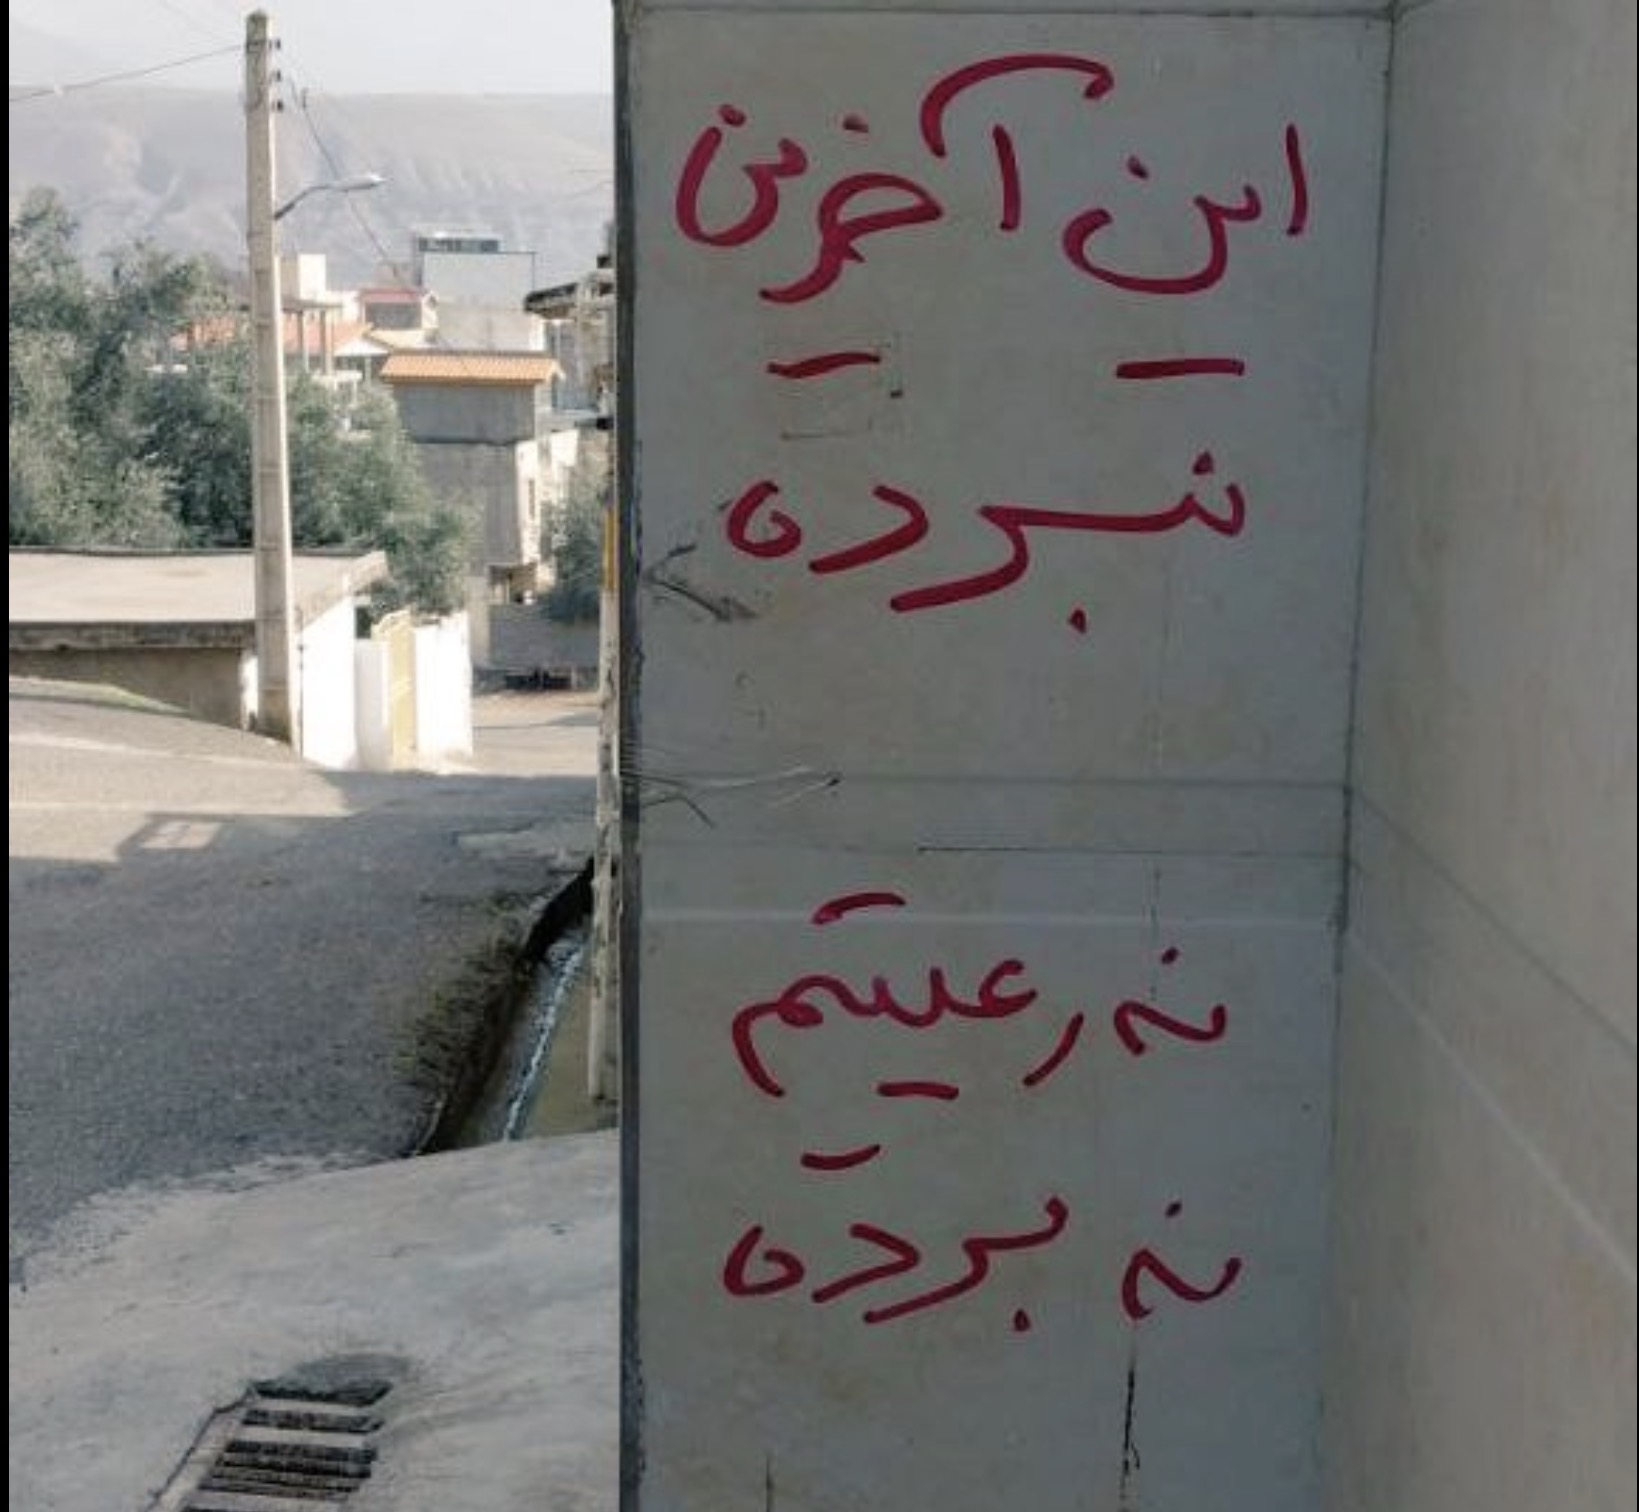 این آخرین
نبرده
نه رعیتیم
نه برده